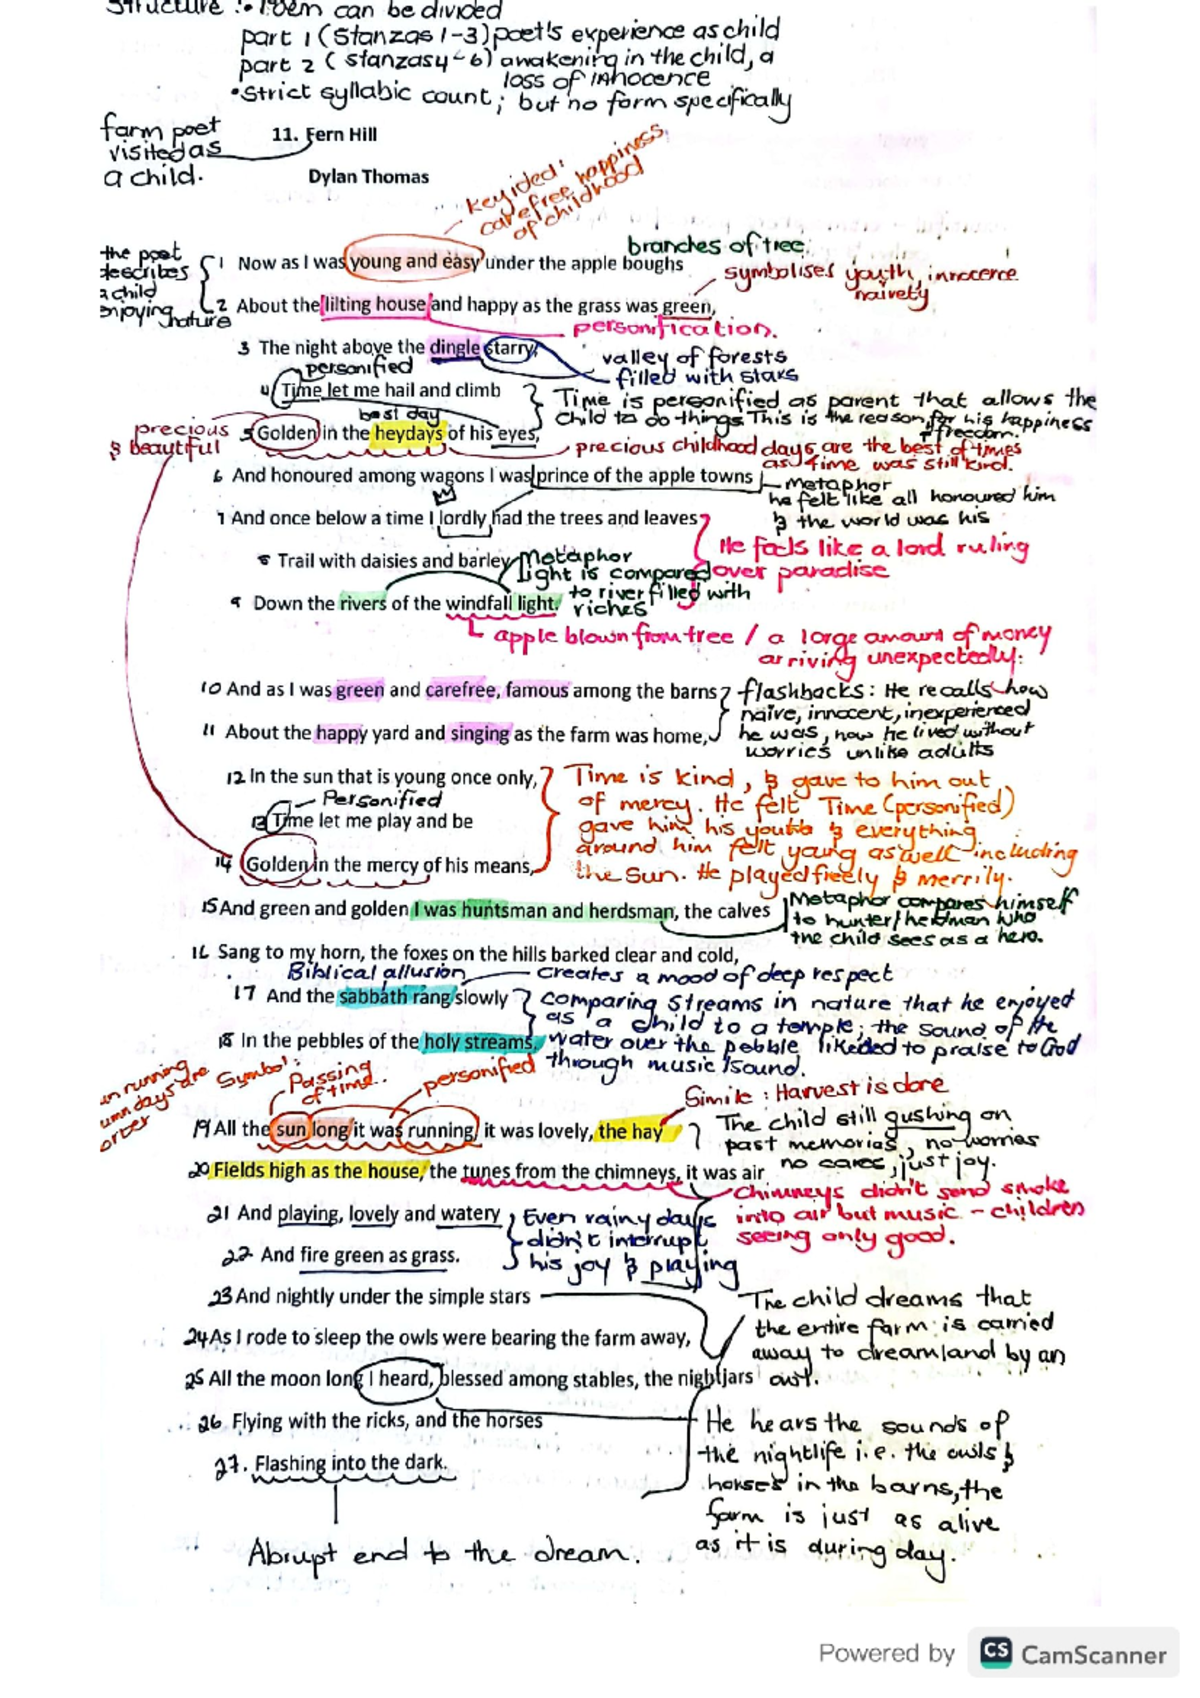 Structure :• Poem can be divided
part 1 (Stanzas 1-3) poet's experience as child
part 2 (stanzas 4-6) awakening in the child, a
loss of innocence
•Strict syllabic count; but no form specifically
farm poet
visited as
a child.
11. Fern Hill
Dylan Thomas
key idea:
carefree happiness
of childhood
the poet
describes
a child
enjoying
nature
branches of tree
1 Now as I was young and easy under the apple boughs
symbolises youth, innocence
naivety
2 About the lilting house and happy as the grass was green,
personification.
3 The night above the dingle starry,
valley of forests
filled with stars
personified
4 Time let me hail and climb
Time is personified as parent that allows the
child to do things This is the reason for his happiness
+ freedom.
best day
precious
& beautiful
5 Golden in the heydays of his eyes,
precious childhood days are the best of times
as time was still kind.
6 And honoured among wagons I was prince of the apple towns
Metaphor
he felt like all honoured him
& the world was his
7 And once below a time I lordly had the trees and leaves
He feels like a lord ruling
over paradise
8 Trail with daisies and barley
Metaphor
Light is compared
to river filled with
riches
9 Down the rivers of the windfall light.
apple blown from tree / a large amount of money
arriving unexpectedly.
10 And as I was green and carefree, famous among the barns
flashbacks: He recalls how
naive, innocent, inexperienced
he was, how he lived without
worries unlike adults
11 About the happy yard and singing as the farm was home,
12 In the sun that is young once only,
Time is kind, & gave to him out
of mercy. He felt Time (personified)
gave him his youth & everything
around him felt young as well including
the Sun. He played freely & merrily.
Personified
13 Time let me play and be
14 Golden in the mercy of his means,
15 And green and golden I was huntsman and herdsman, the calves
Metaphor compares himself
to hunter/herdman who
the child sees as a hero.
16 Sang to my horn, the foxes on the hills barked clear and cold,
Biblical allusion
creates a mood of deep respect
17 And the sabbath rang slowly
comparing streams in nature that he enjoyed
as a child to a temple; the sound of the
water over the pebble likeded to praise to God
through music /sound.
18 In the pebbles of the holy streams,
running
days are
Symbol:
Passing
of time..
personified
Simile : Harvest is done
19 All the sun long it was running, it was lovely, the hay
The child still gushing on
past memories, no worries
no cares, just joy.
20 Fields high as the house, the tunes from the chimneys, it was air
Chimneys didn't send smoke
into air but music - children
seeing only good.
21 And playing, lovely and watery
Even rainy days
didn't interrupt
his joy & playing
22 And fire green as grass.
23 And nightly under the simple stars
The child dreams that
the entire farm is carried
away to dreamland by an
owl.
24 As I rode to sleep the owls were bearing the farm away,
25 All the moon long I heard, blessed among stables, the nightjars
26 Flying with the ricks, and the horses
He hears the sounds of
the nightlife i.e. the owls &
horses in the barns, the
farm is just as alive
as it is during day.
27. Flashing into the dark.
Abrupt end to the dream.
Powered by CS CamScanner